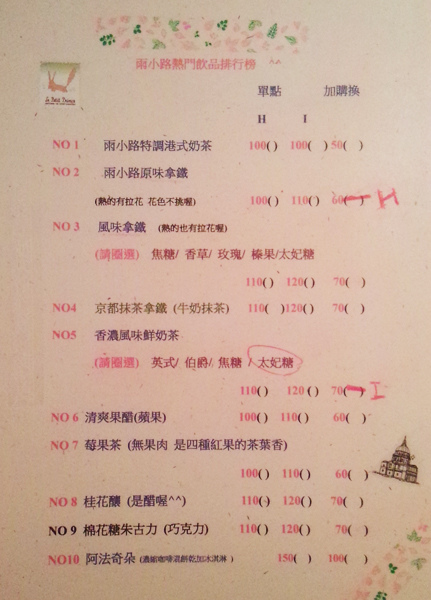 雨小路熱門飲品排行榜 ^^
單點 加購換
H I
NO 1 雨小路特調港式奶茶 100( ) 100( ) 50( )
NO 2 雨小路原味拿鐵
(熱的有拉花 花色不挑喔) 100( ) 110( ) 60( ) H
NO 3 風味拿鐵 (熱的也有拉花喔)
(請圈選) 焦糖/ 香草/ 玫瑰/ 榛果/太妃糖
110( ) 120( ) 70( )
NO4 京都抹茶拿鐵 (牛奶抹茶) 110( ) 120( ) 70( )
NO5 香濃風味鮮奶茶
(請圈選) 英式/ 伯爵/ 焦糖 / 太妃糖
110( ) 120 ( ) 70( ) I
NO 6 清爽果醋(蘋果) 100( ) 110( ) 60( )
NO 7 莓果茶 (無果肉 是四種紅果的茶葉香)
100( ) 110( ) 60( )
NO 8 桂花釀 (是醋喔^^) 110( ) 120( ) 70( )
NO 9 棉花糖朱古力 (巧克力) 110( ) 120( ) 70( )
NO10 阿法奇朵 (濃縮咖啡混餅乾加冰淇淋 ) 150( ) 100( )